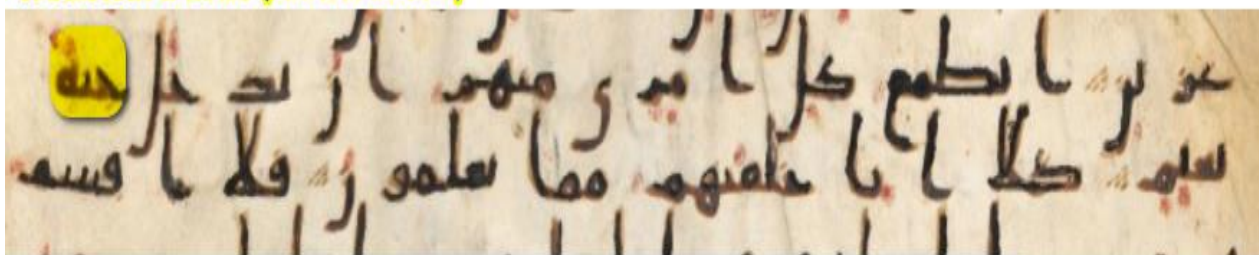 عزين ايطمع كل امرى منهم ان يدخل جنة
نعيم كلا انا خلقنهم مما يعلمون فلا اقسم